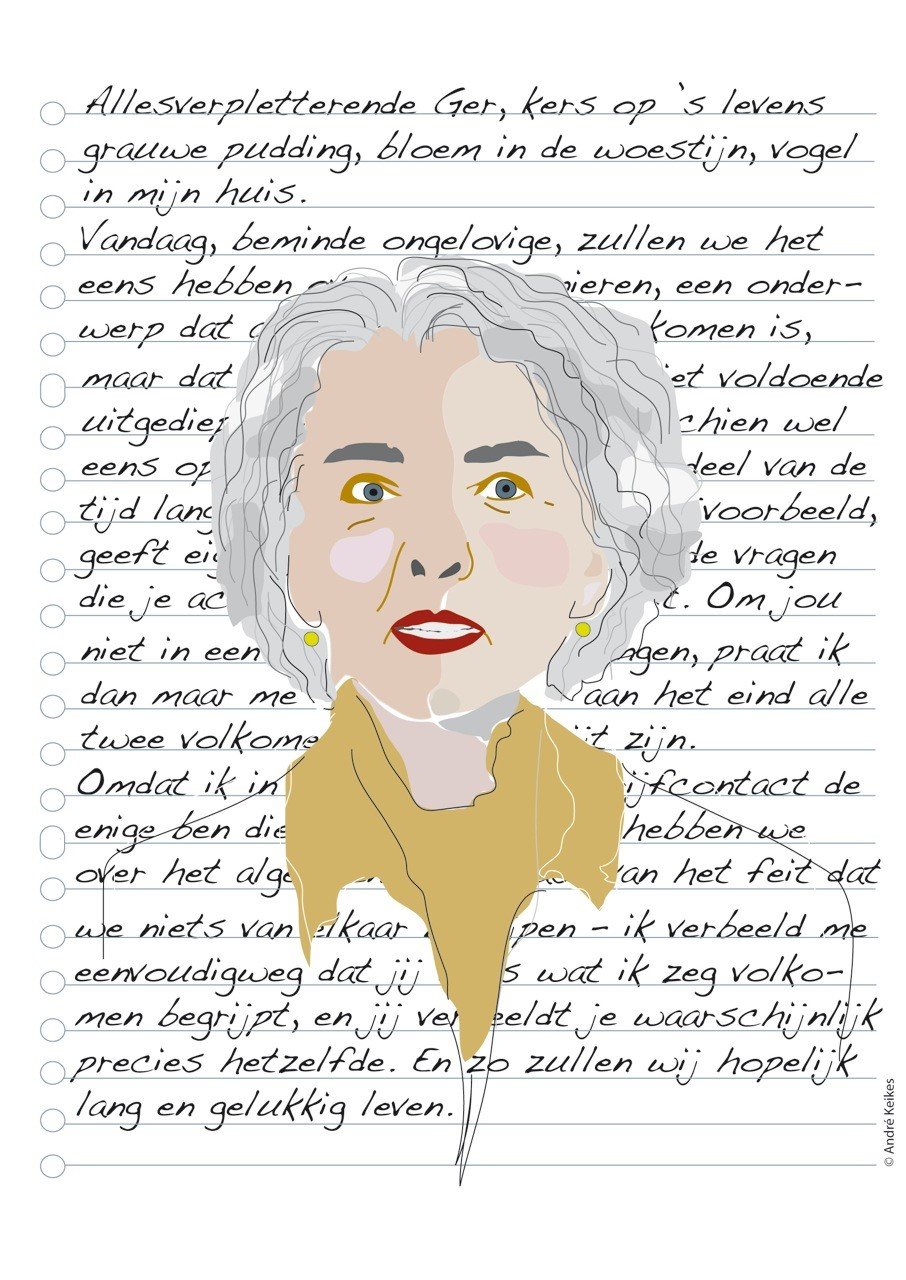 Allesverpletterende Ger, kers op 's levens
grauwe pudding, bloem in de woestijn, vogel
in mijn huis.
Vandaag, beminde ongelovige, zullen we het
eens hebben ieren, een onder-
werp dat komen is,
maar dat iet voldoende
uitgediep chien wel
eens op deel van de
tijd lang voorbeeld,
geeft eig de vragen
die je ac t. Om jou
niet in een agen, praat ik
dan maar me aan het eind alle
twee volkome jt zijn.
Omdat ik in ijfcontact de
enige ben die hebben we
over het alge van het feit dat
we niets van elkaar pen - ik verbeeld me
eenvoudigweg dat jij s wat ik zeg volko-
men begrijpt, en jij verbeeldt je waarschijnlijk
precies hetzelfde. En zo zullen wij hopelijk
lang en gelukkig leven.
© André Keikes